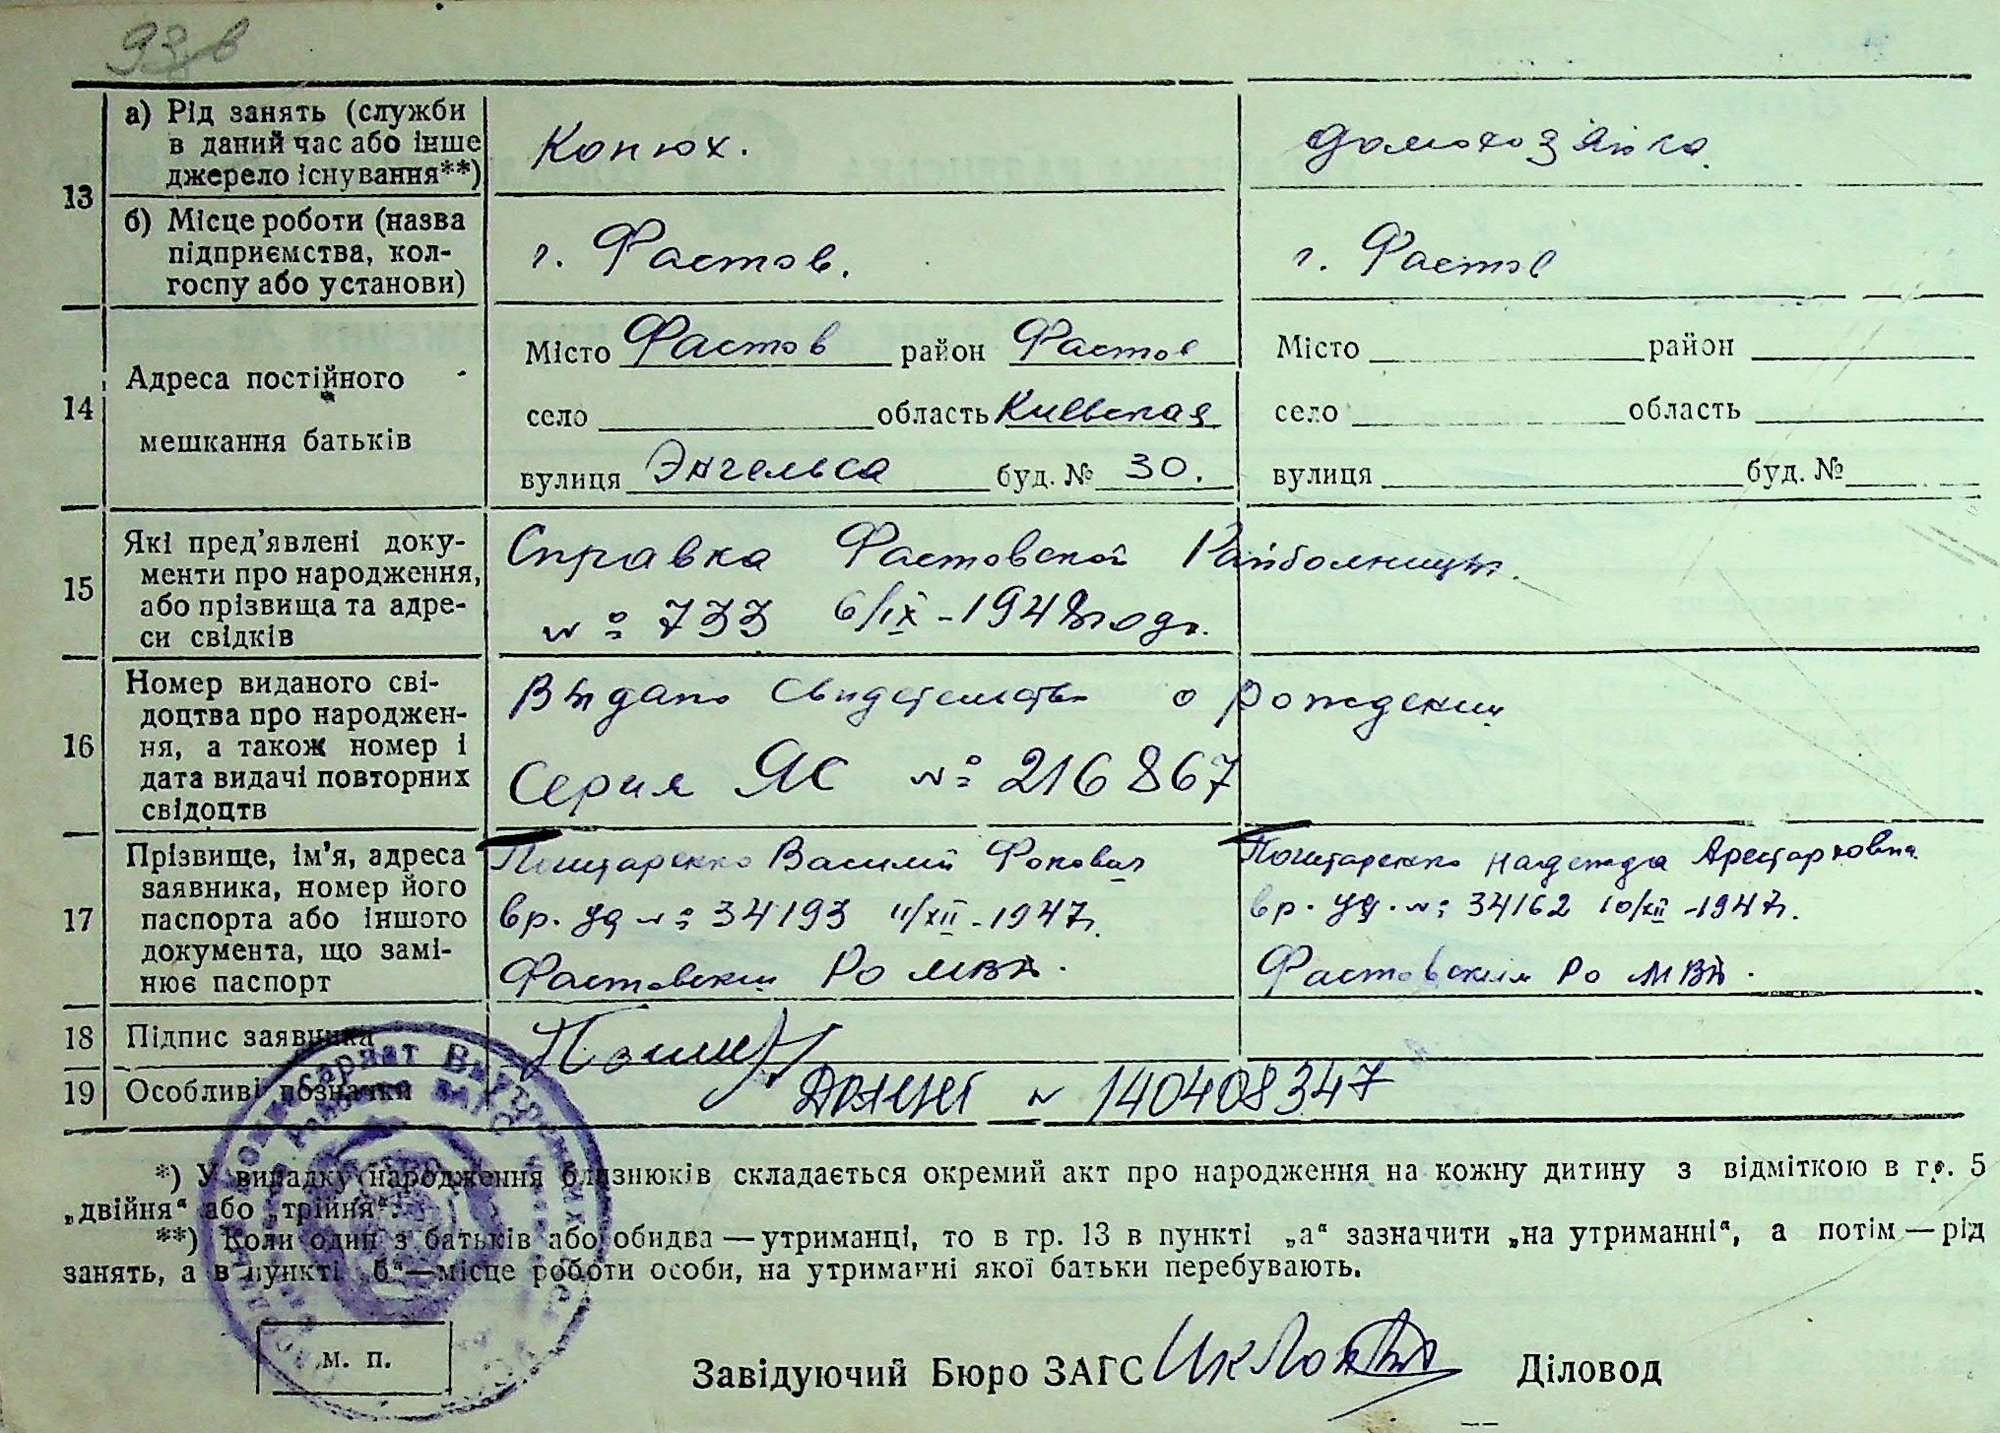 93 в
13
а) Рід занять (служби
в даний час або інше
джерело існування**)
Конюх.
домохозяйка
б) Місце роботи (назва
підприємства, кол-
госпу або установи)
г. Фастов.
г. Фастов
14
Адреса постійного
мешкання батьків
Місто Фастов район Фастов
Місто район
село область Киевская
село область
вулиця Энгельса буд. № 30.
вулиця буд. №
15
Які пред’явлені доку-
менти про народження,
або прізвища та адре-
си свідків
Справка Фастовской Райбольницы.
№ 733 6/IX - 1948 года.
16
Номер виданого сві-
доцтва про народжен-
ня, а також номер і
дата видачі повторних
свідоцтв
Выдано Свидетельство о рождении
Серия ЯС № 216867
17
Прізвище, ім’я, адреса
заявника, номер його
паспорта або іншого
документа, що замі-
нює паспорт
Поштаренко Василий Фокович
вр. уд № 34193 11/XII - 1947г.
Фастовским Ро МВД.
Поштаренко Надежда Арестарховна
вр. уд. № 34162 10/XII - 1947г.
Фастовским Ро МВД.
18
Підпис заявника
19
Особливі позначки
№ 140408347
*) У випадку народження близнюків складається окремий акт про народження на кожну дитину з відміткою в гр. 5
„двійня“ або „трійня“.
**) Коли один з батьків або обидва — утриманці, то в гр. 13 в пункті „а“ зазначити „на утриманні“, а потім — рід
занять, а в пункті „б“—місце роботи особи, на утриманні якої батьки перебувають.
м. п.
Завідуючий Бюро ЗАГС
Діловод